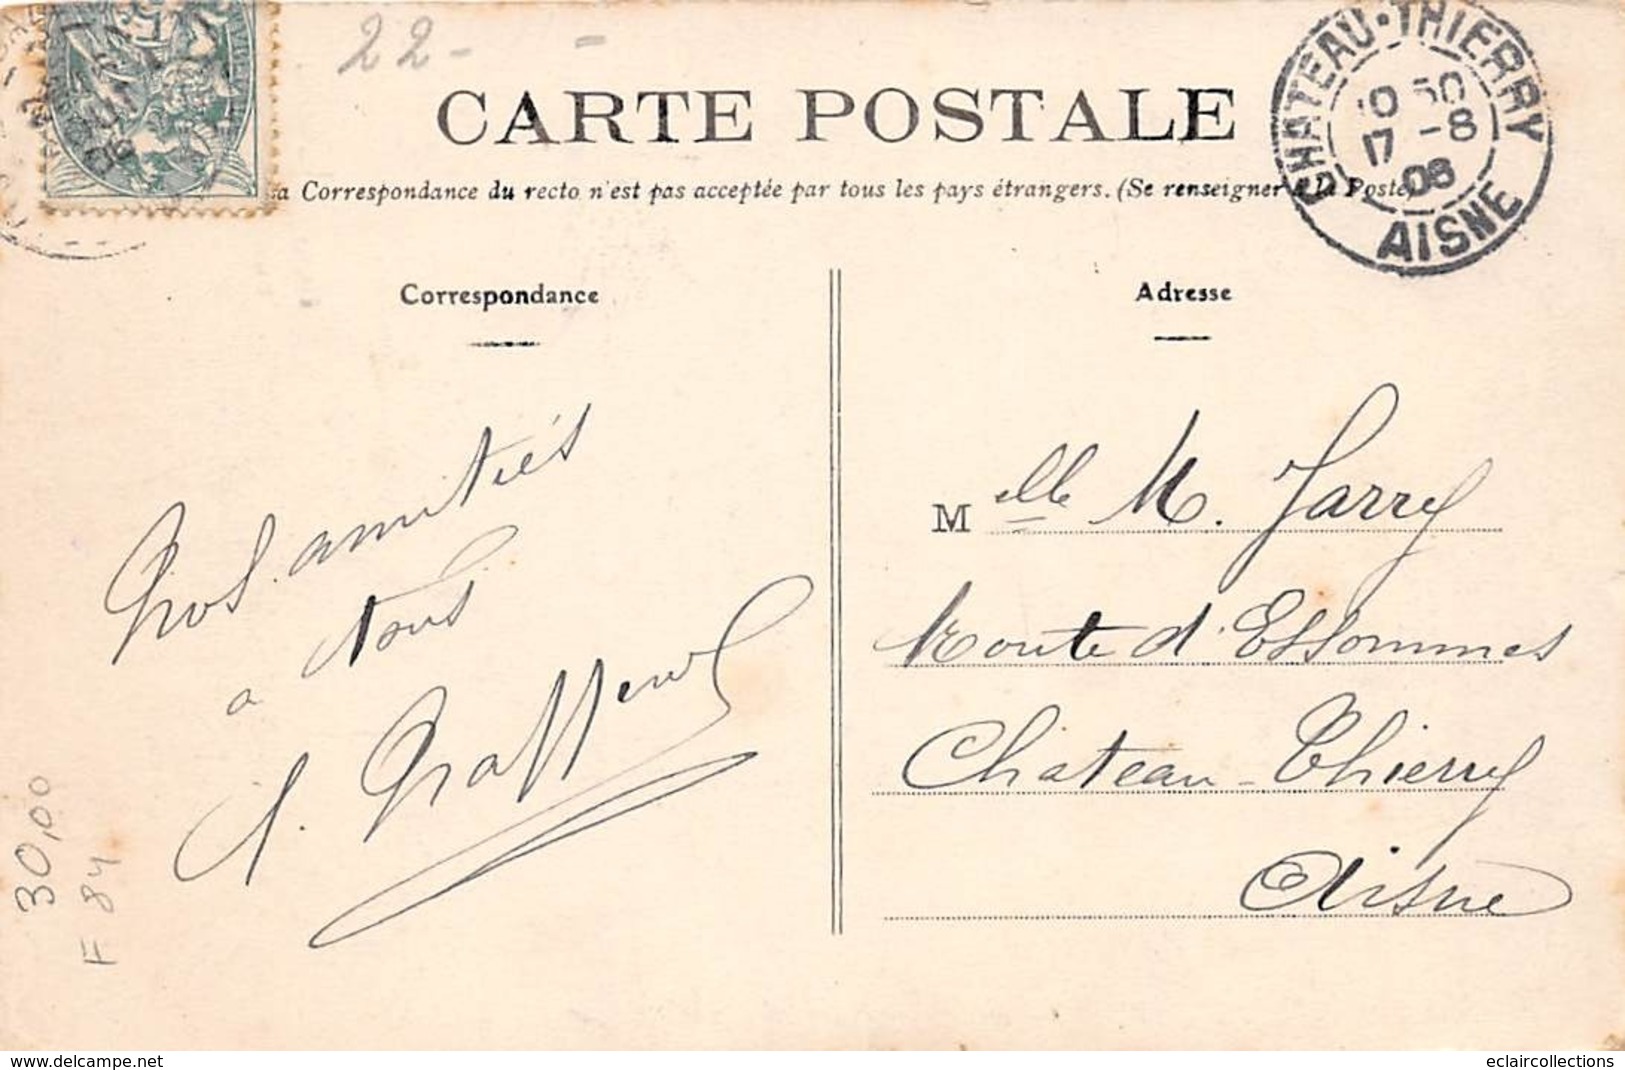 22 - -
CARTE POSTALE
CHATEAU-THIERRY
10 50
17 -8
08
AISNE
La Correspondance du recto n'est pas acceptée par tous les pays étrangers. (Se renseigner à la Poste)
Correspondance
Gros. amitiés
à tous
Adresse
Melle M. Jarry
Route d'Essommes
Château-Thierry
Aisne
30,00
F 84
delcampe.net
eclaircollections